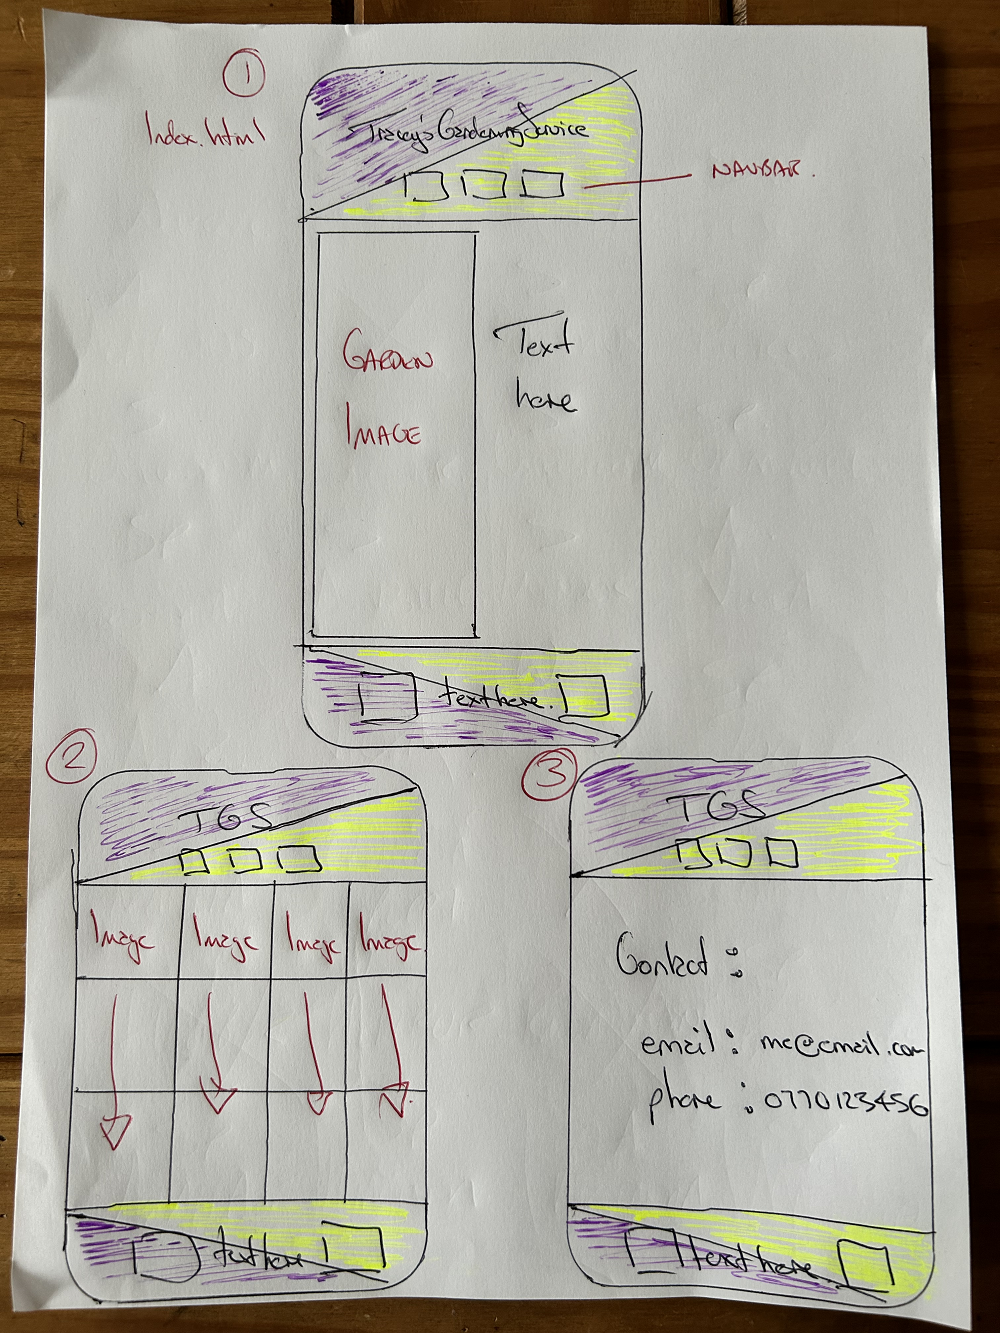 1
Index.html
Tracey's Gardening Service
NAVBAR.
GARDEN
IMAGE
Text
here
text here.
2
TGS
Image Image Image Image
text here
3
TGS
Contact :
email : me@email.com
phone : 0770123456
text here.